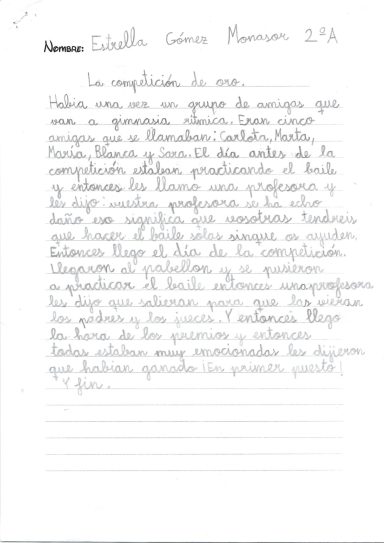 NOMBRE: Estrella Gómez Monasor 2ºA
La competición de oro.
Habia una vez un grupo de amigas que
van a gimnasia ritmica. Eran cinco
amigas que se llamaban: Carlota, Marta,
María, Blanca y Sara. El día antes de la
competición estaban practicando el baile
y entonces les llamo una profesora y
les dijo: vuestra profesora se ha echo
daño eso significa que vosotras tendreis
que hacer el baile solas sinque os ayuden.
Entonces llego el día de la competición.
Llegaron al pabellon y se pusieron
a practicar el baile entonces unaprofesora
les dijo que salieran para que las vieran
los padres y los jueces. Y entonces llego
la hora de los premios y entonces
todas estaban muy emocionadas les dijieron
que habian ganado ¡En primer puesto!
Y fin.